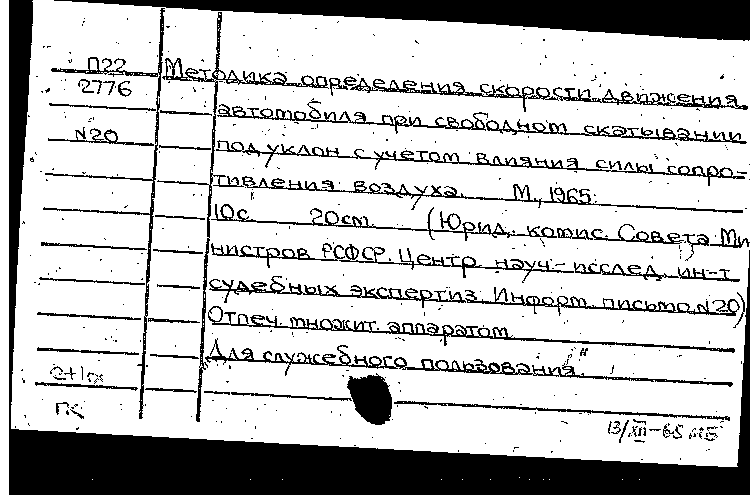 П22
2776
N20
Методика определения скорости движения
автомобиля при свободном скатывании
под уклон с учетом влияния силы сопро-
тивления воздуха. М., 1965.
10с. 20см. (Юрид. комис. Совета Ми
нистров РСФСР. Центр. науч.-исслед. ин-т
судебных экспертиз. Информ. письмо N20)
Отпеч. множит. аппаратом
Для служебного пользования."
ПК
13/XII-65